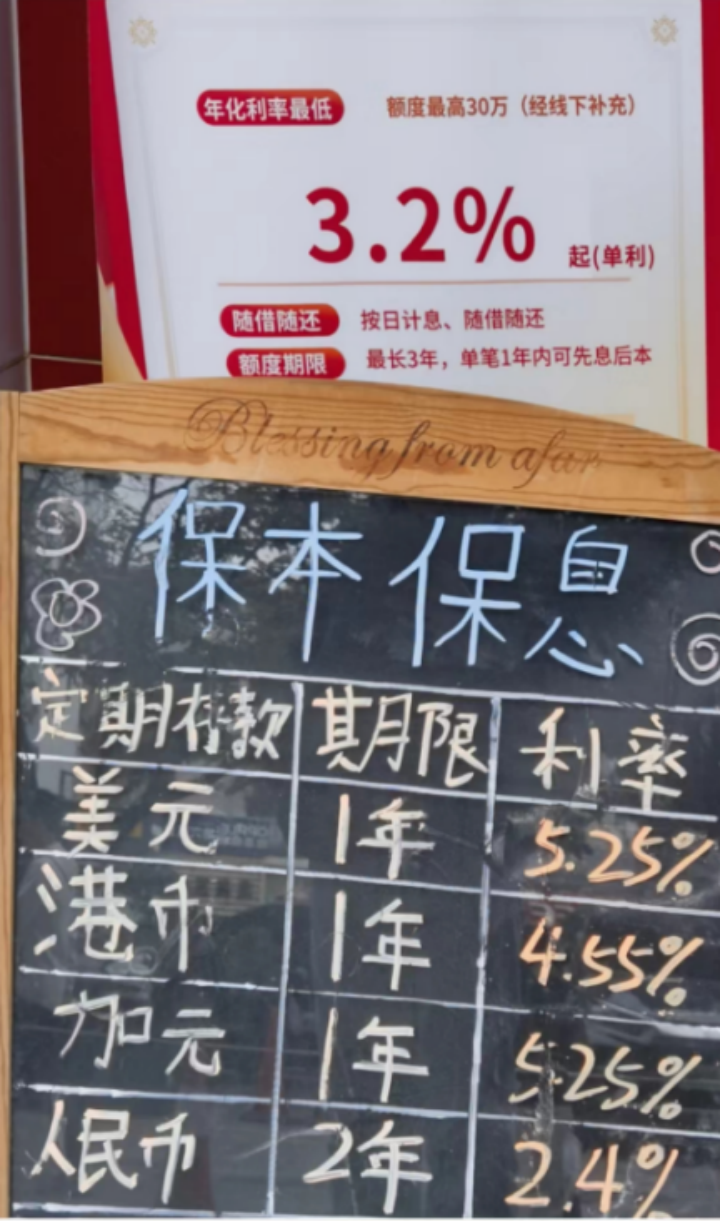 年化利率最低 额度最高30万（经线下补充）
3.2% 起(单利)
随借随还 按日计息、随借随还
额度期限 最长3年，单笔1年内可先息后本
Blessing from afar
保本保息
定期存款 期限 利率
美元 1年 5.25%
港币 1年 4.55%
加元 1年 5.25%
人民币 2年 2.4%